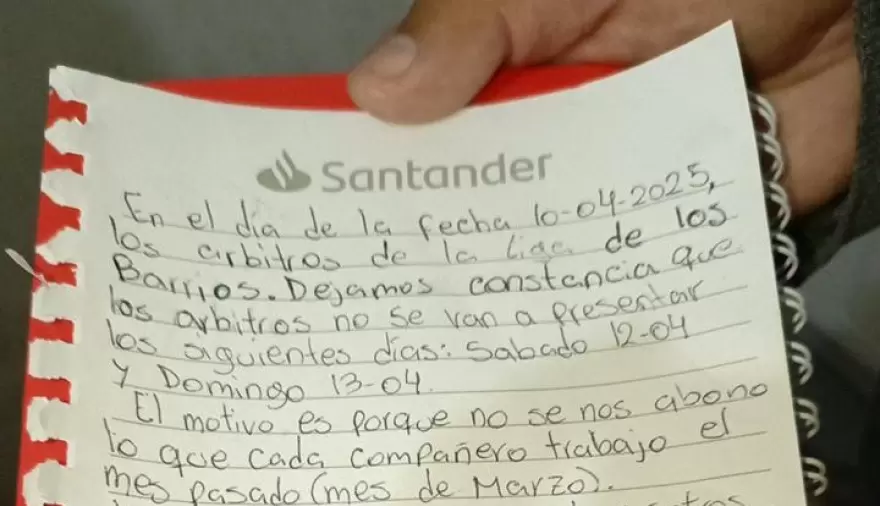 Santander
En el día de la fecha 10-04-2025,
los arbitros de la Liga de los
Barrios. Dejamos constancia que
los arbitros no se van a presentar
los siguientes días: Sabado 12-04
y Domingo 13-04.
El motivo es porque no se nos abono
lo que cada compañero trabajo el
mes pasado (mes de Marzo).